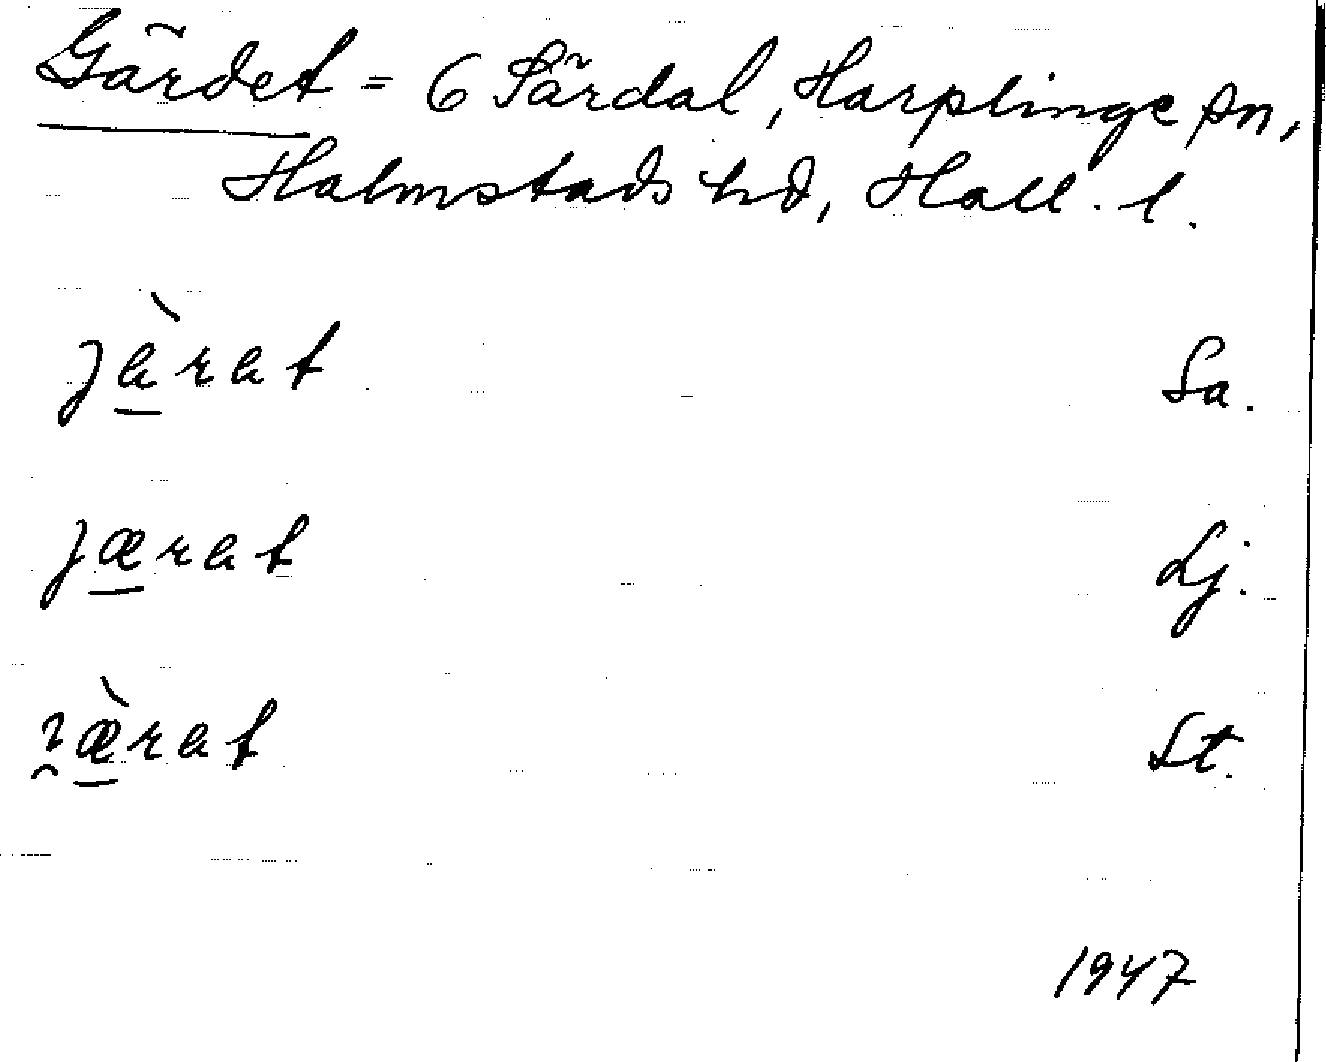 Gärdet = 6 Särdal, Harplinge sn,
Halmstads hd, Hall. l.
jàrat
Sa.
jærat
Lj.
St.
1947